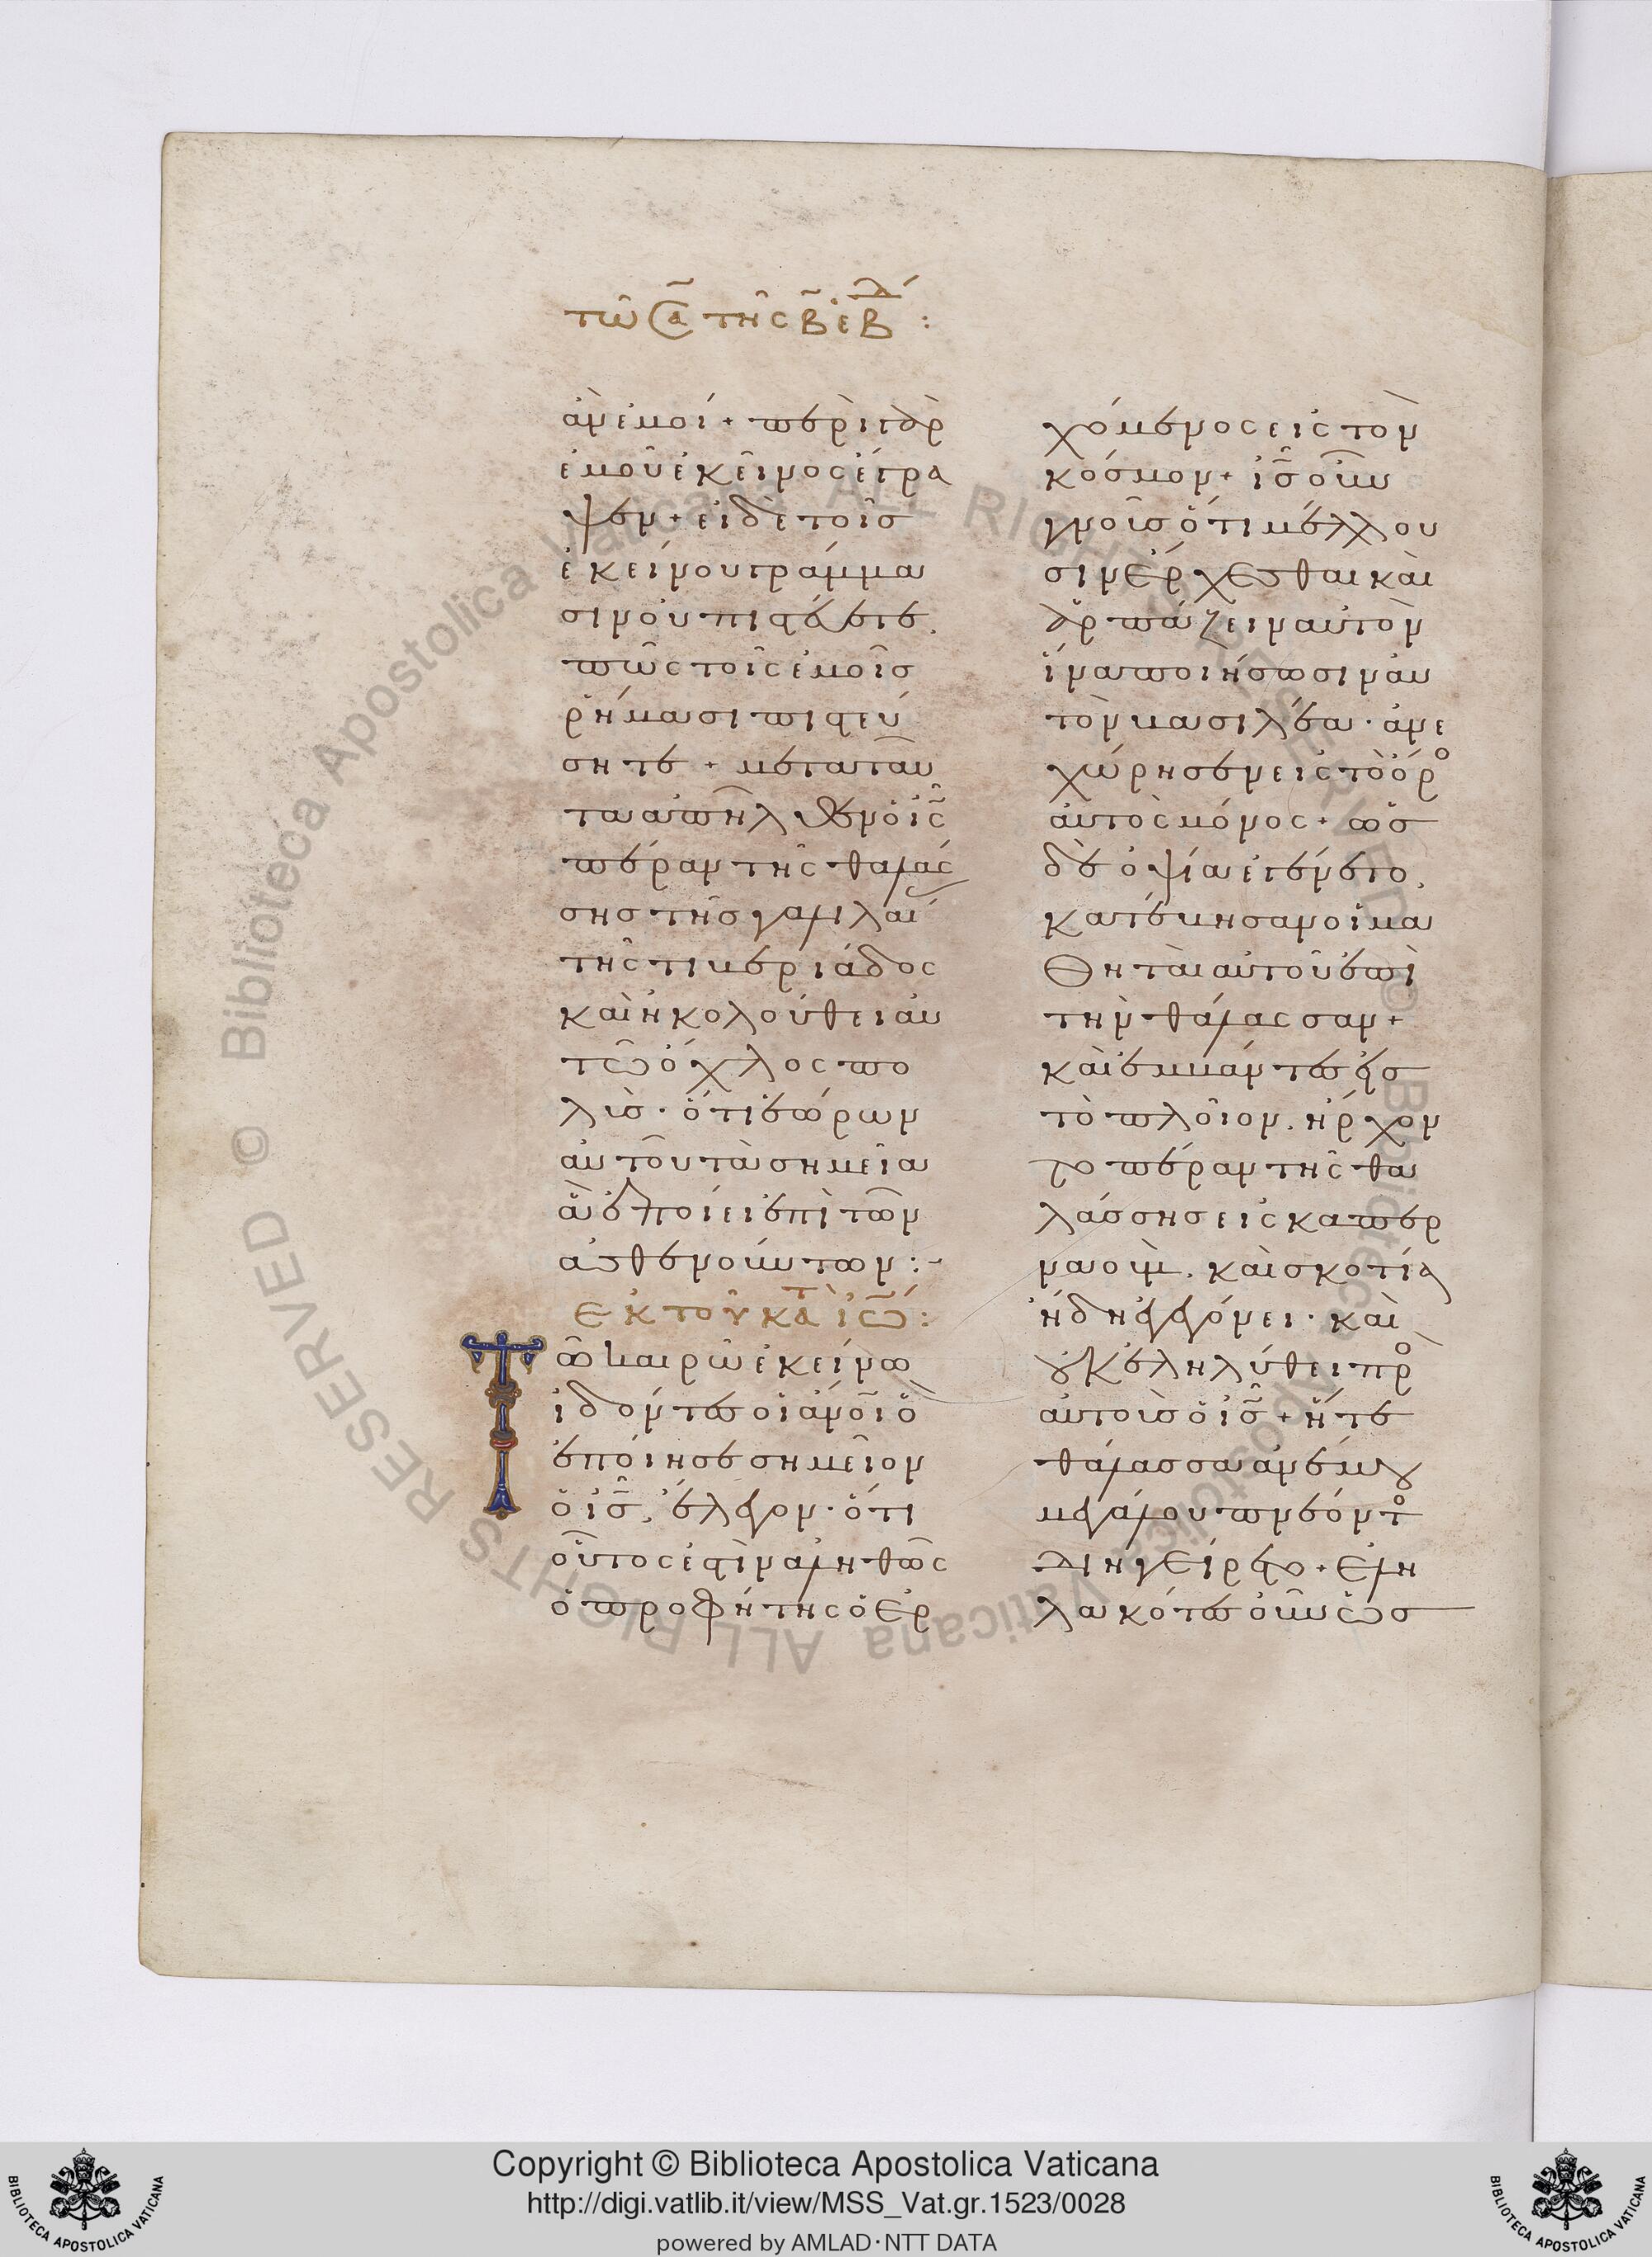 τῶ Σα τῆς β ἑβδ :
ἂν ἐμοί + περὶ γὰρ
ἐμοῦ ἐκεῖνος ἔγρα
ψεν + εἰ δὲ τοῖσ
ἐκείνου γράμμα
σιν οὐ πιστεύετε,
πῶς τοῖς ἐμοῖσ
ῥήμασι πιστεύ
σητε + μετα ταῦ
τα ἀπῆλθεν ὁ ις
πέραν τῆς θαλάς
σησ τῆσ γαλιλαί
τῆς τιβεριάδος
καὶ ἠκολούθει αυ
τῶ ὄχλος πο
λύσ · ὅτι ἑώρων
αὐτοῦ τὰ σημεῖα
ἃ ἐποίει ἐπὶ τῶν
ἀσθενούντων :-
ἐκ τοῦ κατ ιω :
Τῶ καιρῶ ἐκείνω
ἰδόντες οἱ ἄνοι ὃ
ἐποίησε σημεῖον
ὁ ισ, ἔλεγον · ὅτι
οὗτος ἐστὶν ἀληθῶς
ὁ προφήτης ὁ ἐρ
χόμενος εἰς τὸν
κόσμον + ισ οὖν
γνοὺσ ὅτι μέλλου
σιν ἔρχεσθαι καὶ
ἁρπάζειν αὐτὸν
ἵνα ποιήσωσιν αὐ
τὸν βασιλέα · ἀνε
χώρησεν εἰς τὸ ὄρο
αὐτὸς μόνος + ὡσ
δὲ ὀψία ἐγένετο,
κατέβησαν οἱ μα
θηταὶ αὐτοῦ ἐπὶ
τὴν θάλασσαν +
καὶ ἐμβάντεσ
τὸ πλοῖον, ἤρχον
το πέραν τῆς θα
λάσσησ εἰς καπερ
ναούμ, καὶ σκοτία
ἤδη ἐγεγόνει · καὶ
οὐκ ἐληλύθει προ
αὐτοὺσ ὁ ισ + ἥ τε
θάλασσα ἀνέμου
μεγάλου πνέοντο
διηγείρετο + ἐλη
λακότες οὖν ὡσ
Copyright © Biblioteca Apostolica Vaticana
http://digi.vatlib.it/view/MSS_Vat.gr.1523/0028
powered by AMLAD·NTT DATA
BIBLIOTECA APOSTOLICA VATICANA
BIBLIOTECA APOSTOLICA VATICANA
© Biblioteca Apostolica Vaticana ALL RIGHTS RESERVED
© Biblioteca Apostolica Vaticana ALL RIGHTS RESERVED